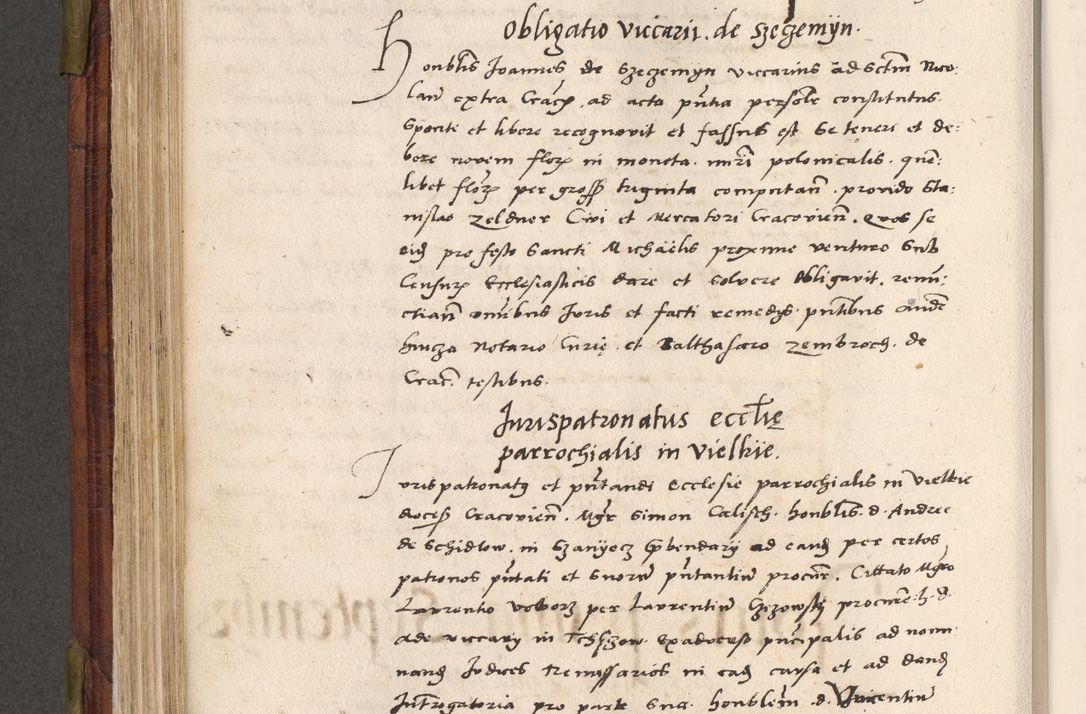 Obligatio viccarii. de szegemÿn.
Honblis Joannes de Szegemÿn viccarius ad Sctm Nico:
laū extra Crac̄ ad acta pñtia persolr̄ constitutus.
Sponte et libere recognovit et fassus est Se teneri et de:
bere novem florꝫ in moneta. nrī polonicalis. quē:
libet florꝫ per gross̄ triginta computan̄. provido Sta:
nislao Zeldner Civi et Mercatori Cracovien̄. Quos se
eidē pro festo Sancti Michaëlis proxime venturo Sub
Censurꝫ Ecclesiasticis dare et solvere obligavit. renū:
ctian̄ omībus Juris et facti remedijs. pn̄tibus Andr̄
hincza Notario Curię. et Balthasaro Zembroch. de
Crac̄. testibus.
Jurispatronatus eccl̄ię
parrochialis in Vielkie.
Jurispatronatꝫ et pn̄tandi Ecclesie parrochialis in Vielkie
dioces̄ Cracovien̄. Mgr̄ Simon Calisch. honblis. d. Andree
de Schidlow. in Szanÿecz p̄bendarij ad eandē per certos
patronos pn̄tati et Suorū pn̄tantiū procur̄. Cittato Mg̃ro
Laurentio per Laurentiū procur̄e. h. d.
ade viccarij in Exadverso principalis ad nomi
nandꝫ Judices remissarios in eadꝫ causa et ad dandꝫ
Int̄rogatoria pro parte Sua. honblem̄ .d. Vincentiū